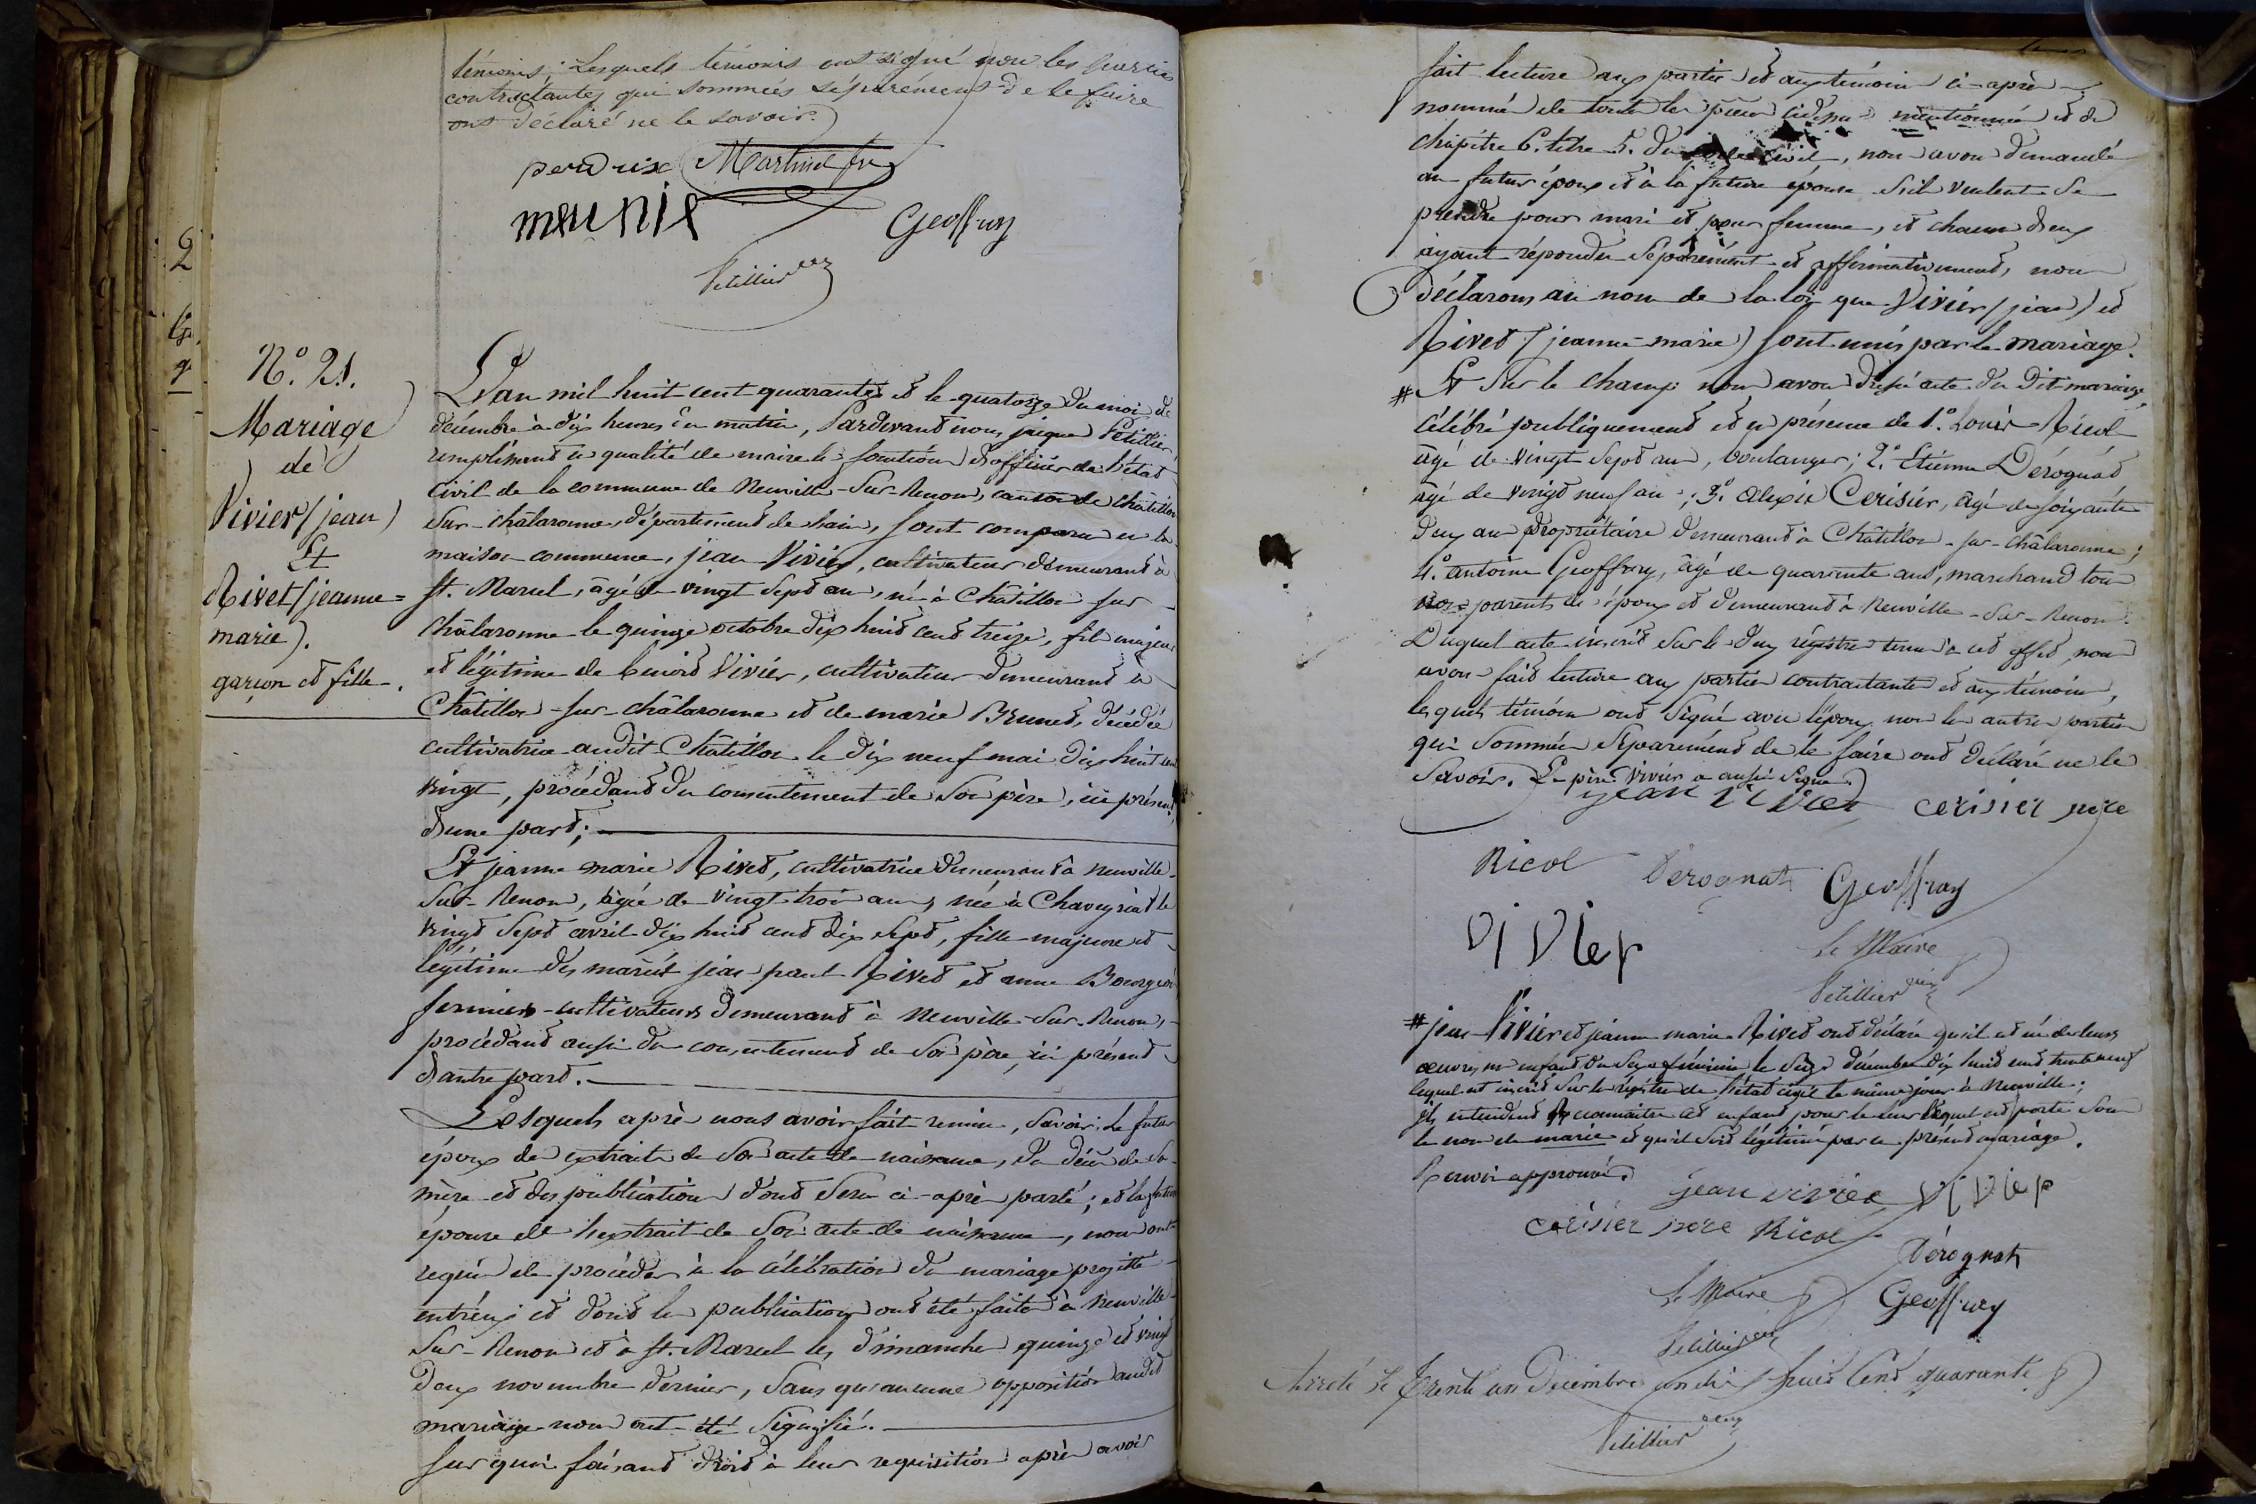 témoins; Lesquels témoins ont signé non les parties
contractantes qui sommées séparément de le faire
ont déclaré ne le savoir.
perdrix Martinet
meunie
Geoffray
Petillier
2
G.
9
N.° 21.
Mariage
de
Vivier (jean)
Et
Rivet (jeanne=
marie).
garçon et fille.
L'an mil huit cent quarante et le quatorze du mois de
décembre à dix heures du matin, Pardevant nous jaque Petillier
remplissant en qualité de maire les fonctions d'officier de l'état
civil de la commune de Neuville-Sur-Renom, canton de châtillon
Sur-châlaronne, département de l'ain, sont comparu en la
maison commune, jean Vivier, cultivateur demeurant à
St. Marcel, âgé de vingt sept ans, né à Châtillon sur
châlaronne le quinze octobre dix huit cent treize, fils majeur
et légitime de benoit Vivier, cultivateur demeurant à
Châtillon-sur-châlaronne et de marie Brunet, décédée
cultivatrice audit Châtillon le dix neuf mai dix huit cent
vingt, procédant du consentement de son père, ici présent,
d'une part;
Et jeanne marie Rivet, cultivatrice demeurant à neuville
Sur-Renom, âgée de vingt trois ans, née à Chaveyriat le
vingt sept avril dix huit cent dix sept, fille majeure et
légitime des mariés jean paul Rivet et anne Bourgeois
fermiers-cultivateurs demeurant à Neuville-Sur-Renom,
procédant aussi du consentement de son père, ici présent
d'autre part.
Lesquels après nous avoir fait remise, savoir: le futur
époux des extraits de son acte de naissance, du décès de sa
mère et des publications dont sera ci-après parlé; et la future
épouse de l'extrait de son acte de naissance, nous ont
requis de procéder à la célébration du mariage projetté
entr'eux et dont les publications ont été faites à Neuville
Sur-Renom et à St. Marcel les dimanches quinze et vingt
deux novembre dernier, sans qu'aucune opposition audit
mariage nous ont été signifié.
Sur quoi faisant droit à leur requisition après avoir
fait lecture aux parties et aux témoins ci-après
nommés de toutes les pièces cidessus mentionnées et du
chapitre 6. titre 5. du code civil, nous avons demandé
au futur époux et à la future épouse s'il veulent se
prendre pour mari et pour femme, et chacun d'eux
ayant répondu séparément et affirmativement, nous
déclarons au nom de la loi que Vivier (jean) et
Rivet (jeanne-marie) sont unis par le mariage.
# Et sur le champ nous avons dressé acte du dit mariage
célébré publiquement et en présence de 1.° Louis Ricol
âgé de vingt sept ans, boulanger; 2.° Etienne Dérognat
âgé de vingt neuf ans; 3.° alexis Cerisier, âgé de soixante
deux ans propriétaire demeurant à Châtillon-sur-châlaronne;
4.° antoine Geoffray, âgé de quarante ans, marchand tous
non parents des époux et demeurant à Neuville-Sur-Renom.
Duquel acte inscrit sur les deux régistres tenus à cet effet, nous
avons fait lecture aux parties contractantes et aux témoins,
lesquels témoins ont signé avec l'époux non les autres parties
qui sommées séparément de le faire ont déclaré ne le
savoir. Le père Vivier a aussi signé.
jean vivier cerisier père
Ricol Dérognat Geoffray
viVier
Le Maire
Petillier
# jean Vivier et jeanne marie Rivet ont déclaré qu'il est né de leurs
oeuvres un enfant du sexe féminin le seize décembre dix huit cent trente neuf
lequel est inscrit sur le régistre de l'état civil le même jour à Neuville;
ils entendent reconnaître cet enfant pour le leur lequel est porté sous
le nom de marie et qu'il soit légitimé par ce présent mariage.
Renvoi approuvé.
jean vivier viVier
cerisier père Ricol
Dérognat
Le Maire Geoffray
Petillier
Arrêté le Trente un Décembre mil huit Cent quarante
Petillier